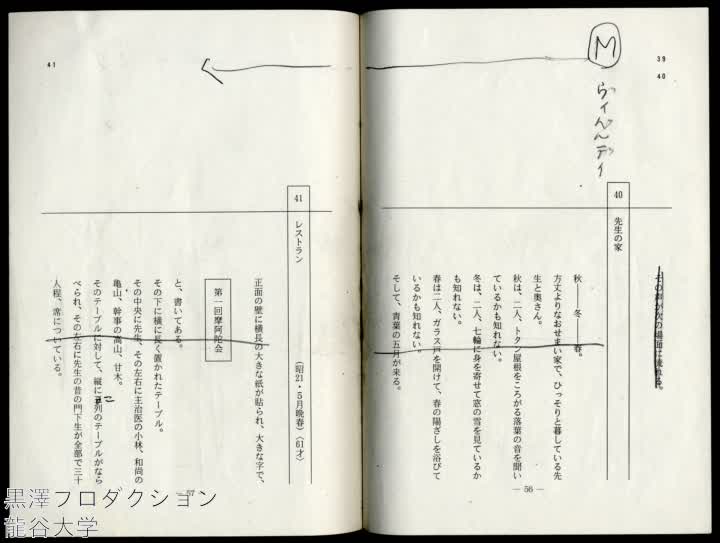 39
40
Ⓜ
ヴィヴァルディ
その声が次の場面に流れる。
40 先生の家
秋――冬――春。
方丈よりなおせまい家で、ひっそりと暮している先
生と奥さん。
秋は、二人、トタン屋根をころがる落葉の音を聞い
ているかも知れない。
冬は、二人、七輪に身を寄せて窓の雪を見ているか
も知れない。
春は二人、ガラス戸を開けて、春の陽ざしを浴びて
いるかも知れない。
そして、青葉の五月が来る。
― 56 ―
41
41 レストラン
(昭21・5月晩春)(61才)
正面の壁に横長の大きな紙が貼られ、大きな字で、
第一回摩阿陀会
と、書いてある。
その下に横に長く置かれたテーブル。
その中央に先生、その左右に主治医の小林、和尚の
亀山、幹事の高山、甘木。
そのテーブルに対して、縦に二列のテーブルがなら
べられ、その左右に先生の昔の門下生が全部で三十
人程、席についている。
57 ―
黒澤プロダクション
龍谷大学